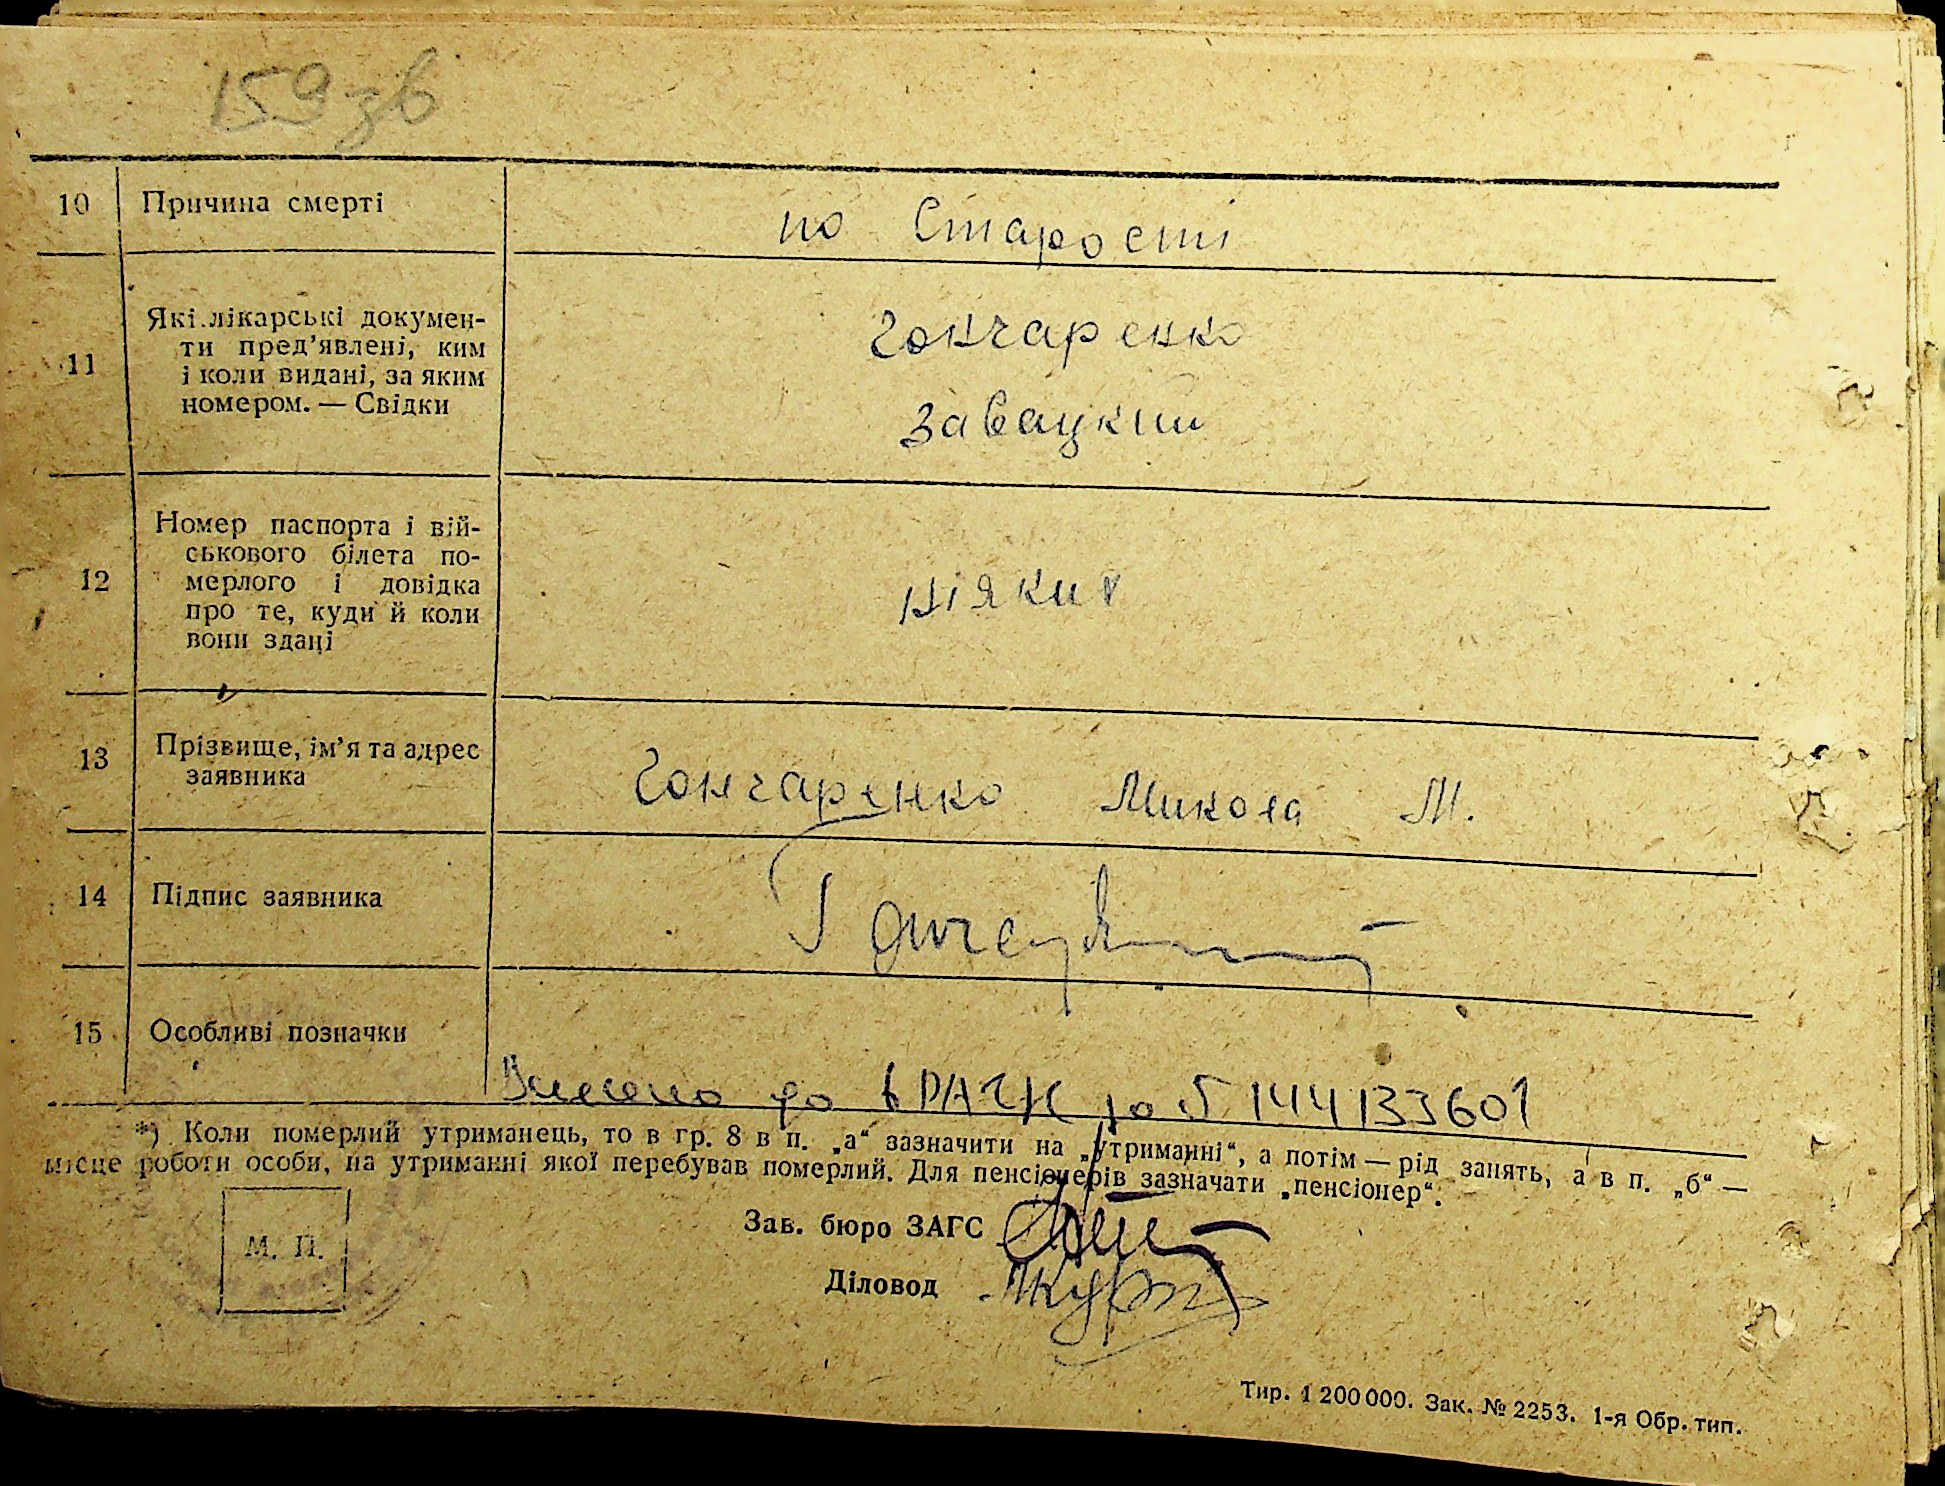 159 зв
10 Причина смерті по Старості
11 Які лікарські докумен-
ти пред’явлені, ким
і коли видані, за яким
номером. — Свідки
Гончаренко
Завацкий
12 Номер паспорта і вій-
ськового білета по-
мерлого і довідка
про те, куди й коли
вони здані
ніяких
13 Прізвище, ім’я та адрес
заявника
Гончаренко Микола М.
14 Підпис заявника
15 Особливі позначки
Внесено до ДРАЦС 144133601
*) Коли померлий утриманець, то в гр. 8 в п. „а“ зазначити на „утриманні“, а потім — рід занять, а в п. „б“ —
місце роботи особи, на утриманні якої перебував померлий. Для пенсіонерів зазначати „пенсіонер“.
Зав. бюро ЗАГС
М. П.
Діловод
Тир. 1 200 000. Зак. № 2253. 1-я Обр. тип.